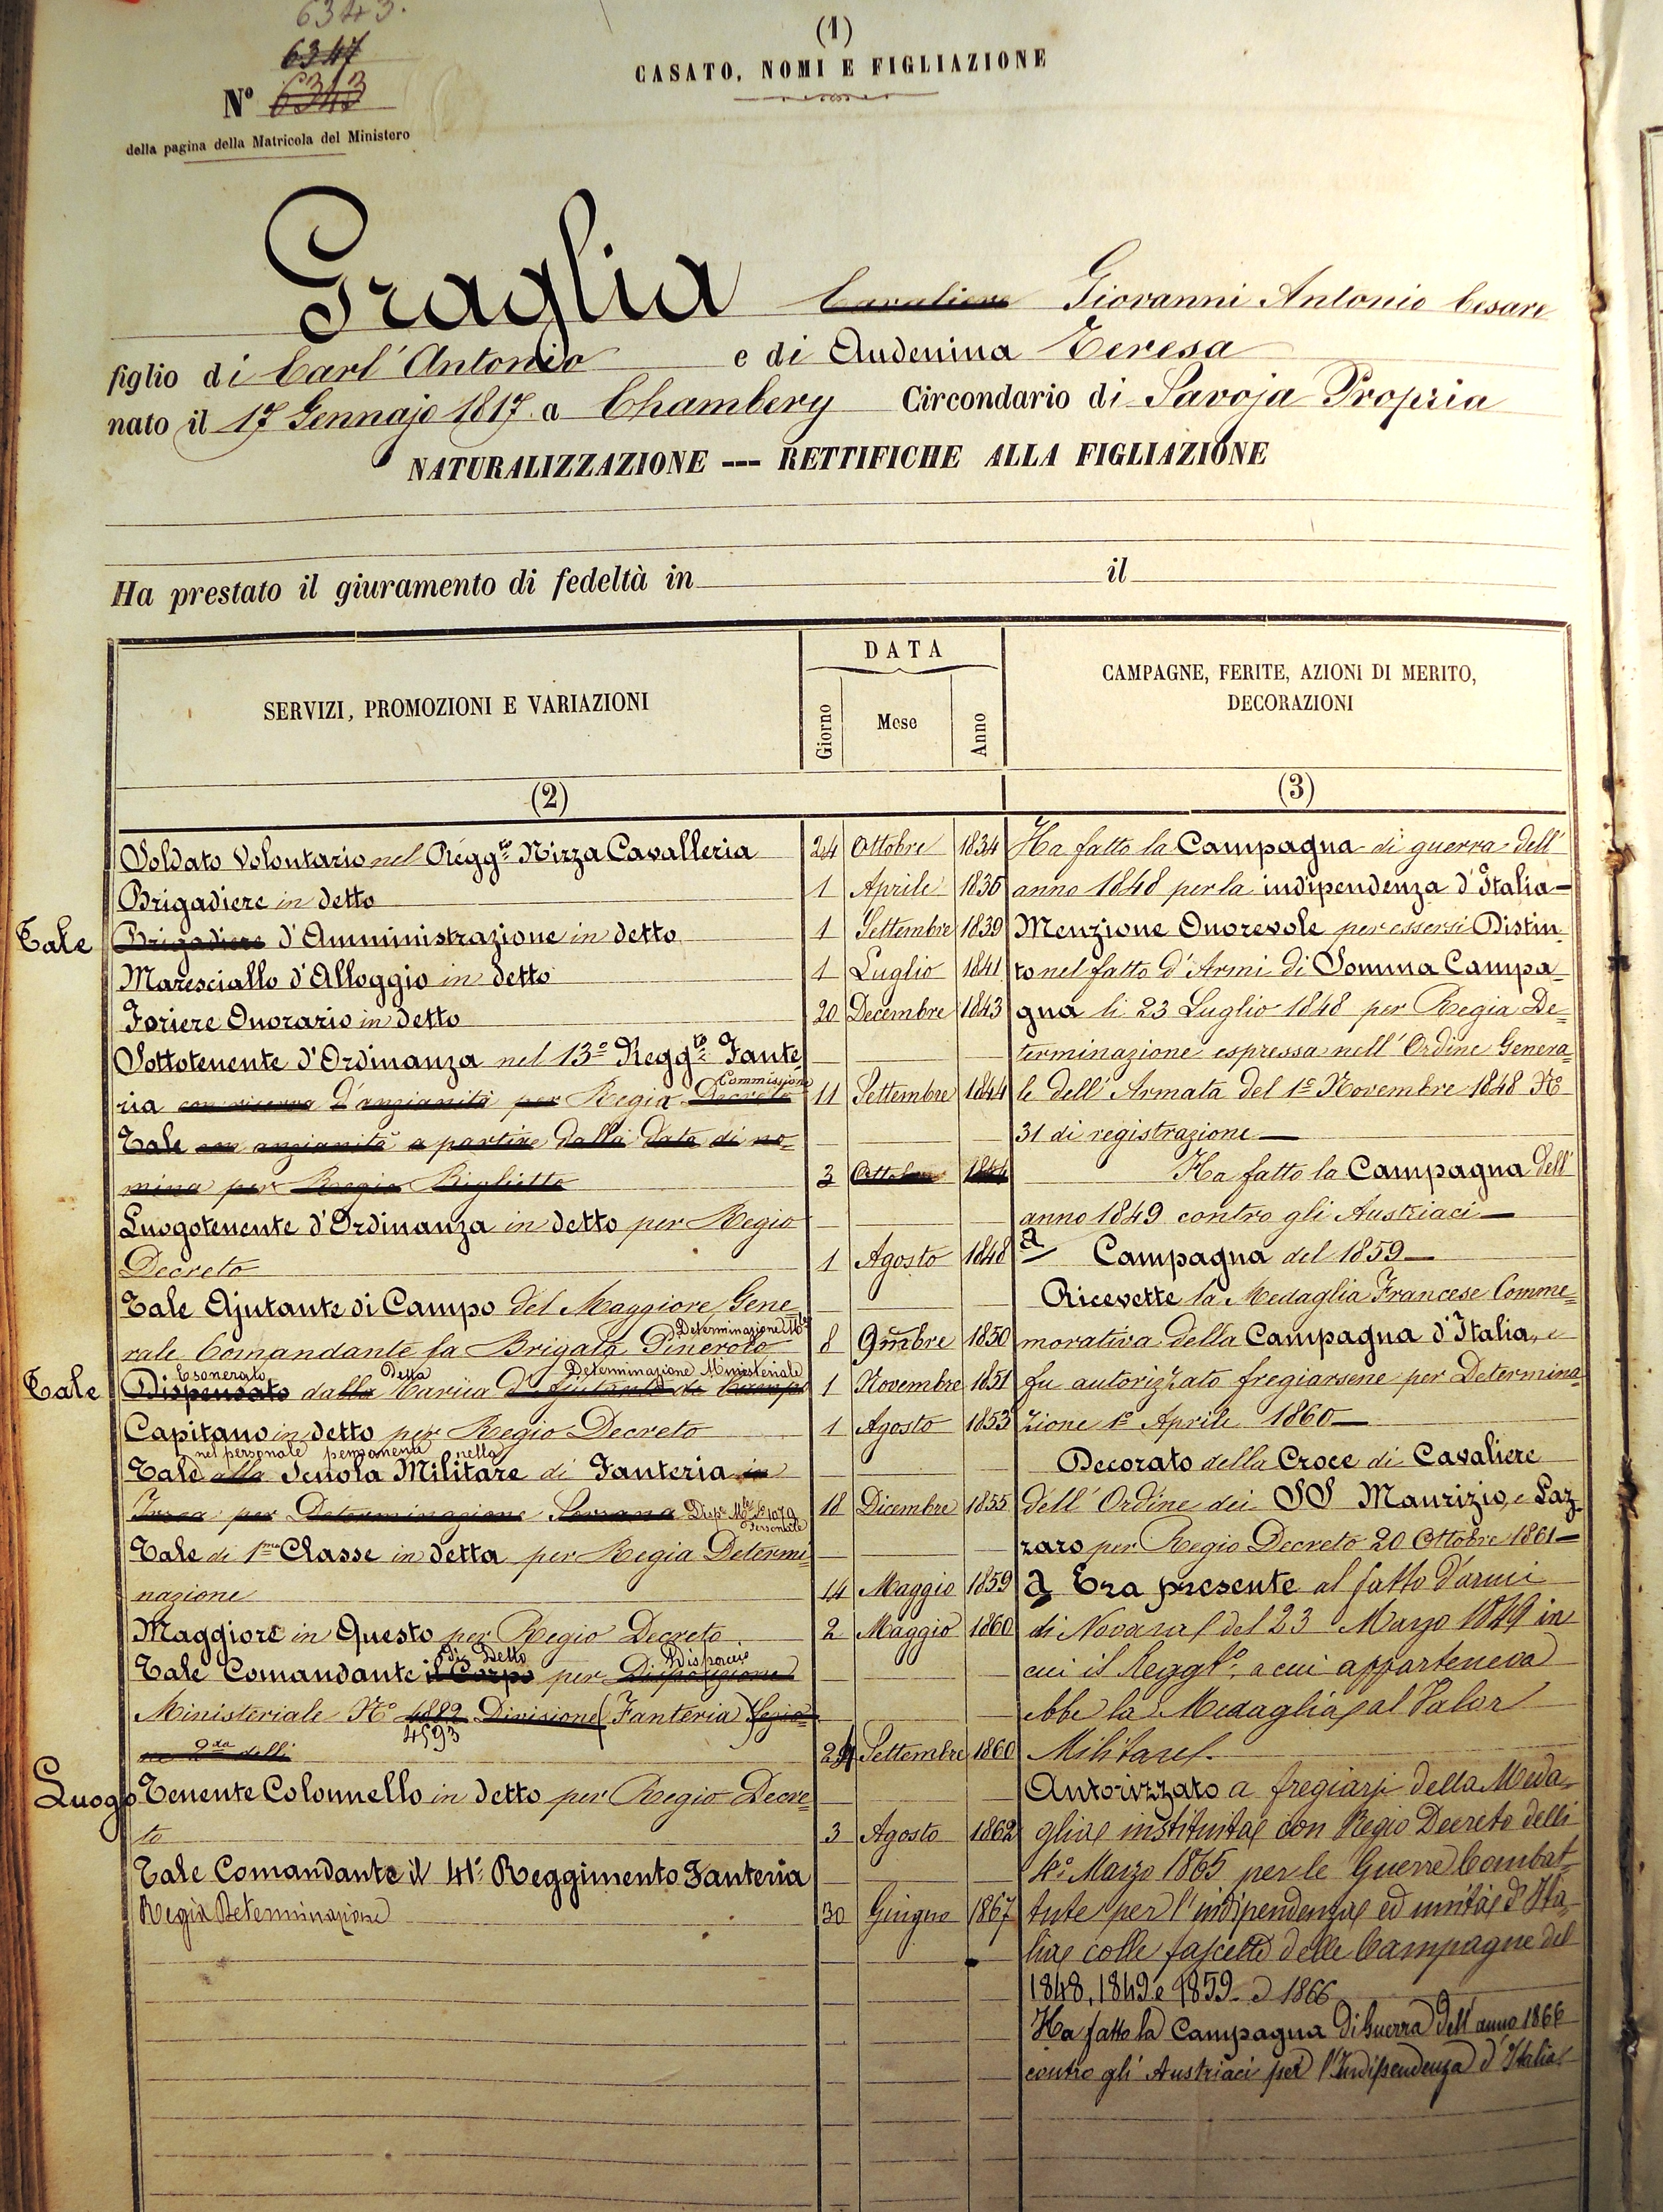 6343.
6347
Nº 6343
della pagina della Matricola del Ministero
(1)
CASATO, NOMI E FIGLIAZIONE
Graglia Cavaliere Giovanni Antonio Cesare
figlio di Carl'Antonio e di Audenina Teresa
nato il 17 Gennajo 1817 a Chambery Circondario di Savoja Propria
NATURALIZZAZIONE --- RETTIFICHE ALLA FIGLIAZIONE
Ha prestato il giuramento di fedeltà in il
SERVIZI, PROMOZIONI E VARIAZIONI
DATA
Giorno Mese Anno
CAMPAGNE, FERITE, AZIONI DI MERITO,
DECORAZIONI
(2)
(3)
Soldato Volontario nel Regg.to Nizza Cavalleria 24 Ottobre 1834
Brigadiere in detto 1 Aprile 1836
Tale Brigadiere d'Amministrazione in detto 1 Settembre 1839
Maresciallo d'Alloggio in detto 1 Luglio 1841
Foriere Onorario in detto 20 Decembre 1843
Sottotenente d'Ordinanza nel 13º Regg.to Fante
Commissione
ria con riserva d'anzianità per Regia Decreto 11 Settembre 1844
Tale con anzianità a partire dalla data di no-
mina per Regio Biglietto 3 Ottobre 1844
Luogotenente d'Ordinanza in detto per Regio
Decreto 1 Agosto 1848
Tale Ajutante di Campo del Maggiore Gene
Determinazione M.le
rale Comandante la Brigata Pinerolo 8 9mbre 1850
Esonerato Detta Determinazione Ministeriale
Tale Dispensato dalla Carica d'Ajutante di Campo 1 Novembre 1851
Capitano in detto per Regio Decreto 1 Agosto 1853
nel personale permanente nella
Tale alla Scuola Militare di Fanteria in
Ivrea per Determinazione Sovrana Disp.e M.le Nº 1079 Personale 18 Dicembre 1855
Tale di 1.ma Classe in detta per Regia Determi
nazione 14 Maggio 1859
Maggiore in Questo per Regio Decreto 2 Maggio 1860
di Detto Dispaccio
Tale Comandante il Corpo per Disposizione
Ministeriale Nº 4882 Divisione (Fanteria) Sezio-
4593
ne 2.da delli 24 Settembre 1860
Luogo Tenente Colonnello in detto per Regio Decre-
to 3 Agosto 1862
Tale Comandante il 41º Reggimento Fanteria
Regia Determinazione 30 Giugno 1867
Ha fatto la Campagna di guerra dell'
anno 1848 per la indipendenza d'Italia—
Menzione Onorevole per essersi Distin-
to nel fatto d'Armi di Somma Campa
gna li 23 Luglio 1848 per Regia De-
terminazione espressa nell'Ordine Genera-
le dell'Armata del 1º Novembre 1848 Nº
31 di registrazione—
Ha fatto la Campagna dell'
anno 1849 contro gli Austriaci—
a Campagna del 1859—
Ricevette la Medaglia Francese Comme-
morativa della Campagna d'Italia, e
fu autorizzato fregiarsene per Determina
zione 1º Aprile 1860—
Decorato della Croce di Cavaliere
dell'Ordine dei SS Maurizio, e Laz-
zaro per Regio Decreto 20 Ottobre 1861—
a Era presente al fatto d'armi
di Novara del 23 Marzo 1849 in
cui il Regg.to, a cui apparteneva
ebbe la Medaglia al Valor
Militare.
Autorizzato a fregiarsi della Meda-
glia instituita con Regio Decreto delli
4º Marzo 1865 per le Guerre Combat-
tute per l'indipendenza ed unità d'Ita-
lia colle fascette delle Campagne del
1848, 1849 e 1859 e 1866
Ha fatto la Campagna di Guerra dell'anno 1866
contro gli Austriaci per l'Indipendenza d'Italia